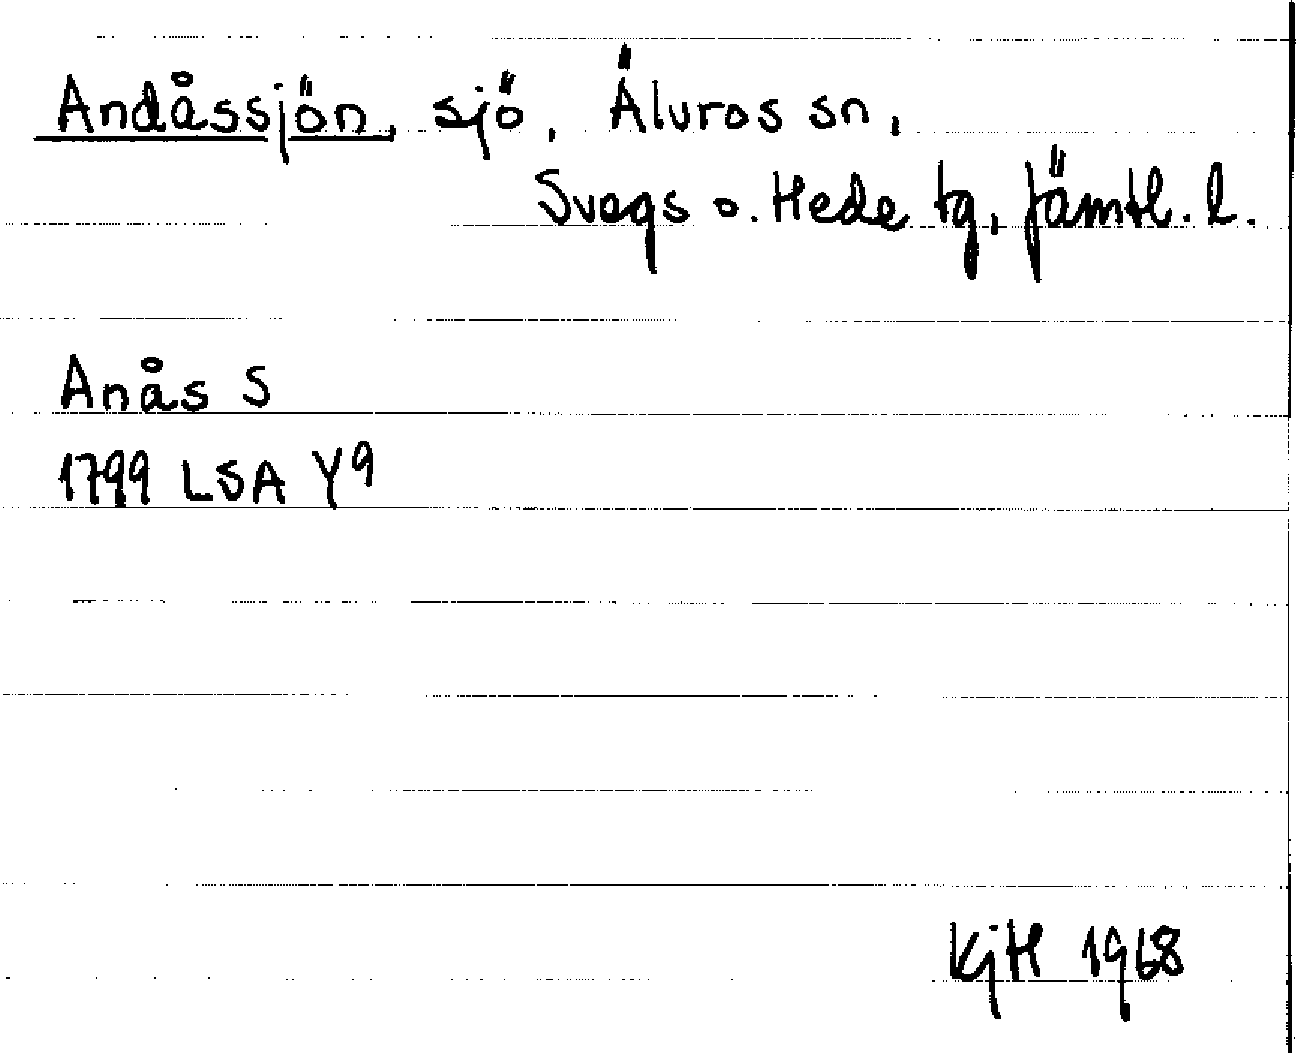 Andåssjön, sjö, Älvros sn,
Svegs o. Hede tg, Jämtl. l.
Anås S
1799 LSA Y9
KjH 1968